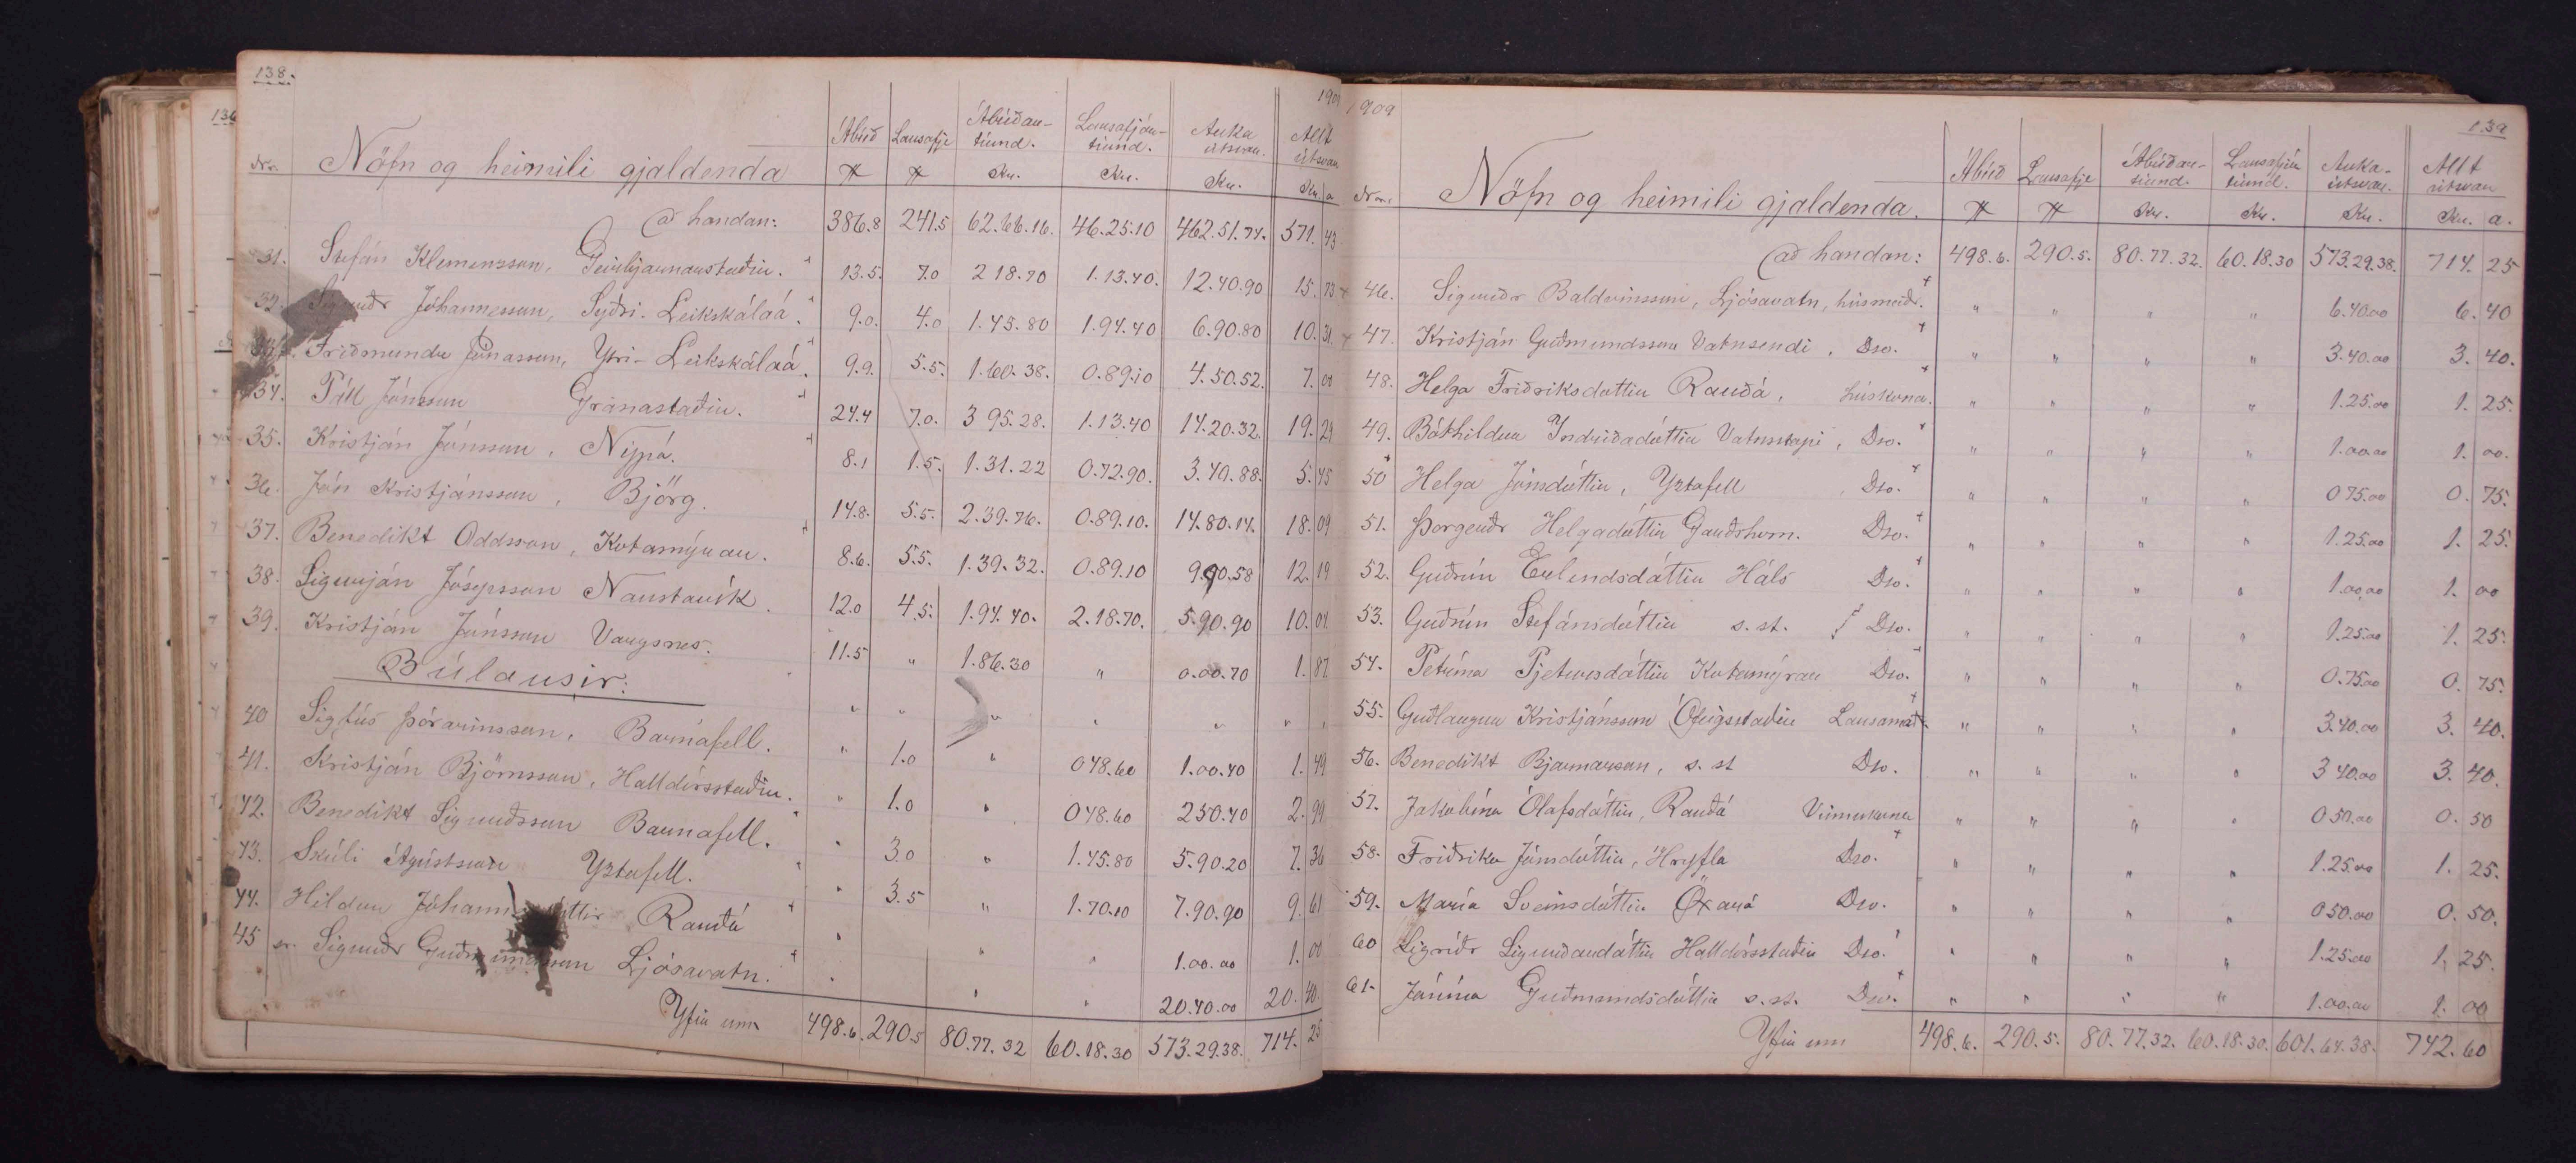 138.
1909
Nr. Nöfn og heimili gjaldenda Ábúð Lausafje Ábúðar-tíund. Lausafjár-tíund. Auka útsvar. Allt útsvar
Kr. Kr. Kr. Kr. a
að handan: 386.8 241.5 62.66.16. 46.25.10 462.51.74. 571. 43
31. Stefán Klemensson, Geirbjarnarstaðir. 13.5. 7.0 2 18.70 1.13.40. 12.40.90 15. 73
32. Sigurðr Jóhannesson, Syðri-Leikskálaá. 9.0. 4.0 1.45.80 1.94.40 6.90.80 10. 31.
33. Friðmundr Jónasson, Ytri-Leikskálaá. 9.9. 5.5. 1.60.38. 0.89.10 4.50.52. 7. 00
34. Páll Jónsson Granastaðir. 24.4 7.0. 3 95.28. 1.13.40 14.20.32. 19. 29
35. Kristján Jónsson, Nípá. 8.1 1.5. 1.31.22 0.72.90. 3.40.88. 5. 45
36. Jón Kristjánsson, Björg. 14.8. 5.5. 2.39.76. 0.89.10. 14.80.14. 18. 09
37. Benedikt Oddsson, Kotamýrar. 8.6. 5.5. 1.39.32. 0.89.10 9.90.58 12. 19
38. Sigurján Jósepsson Naustavík. 12.0 4.5. 1.94.40. 2.18.70. 5.90.90 10. 04
39. Kristján Jónsson Vargsnes. 11.5 " 1.86.30 " 0.00.70 1. 87
Búlausir: " " " " " " "
40 Sigfús Þórarinsson, Barnafell. " 1.0 " 048.60 1.00.40 1. 49
41. Kristján Björnsson, Halldórsstaðir. " 1.0 " 048.60 250.40 2. 99
42. Benedikt Sigurðsson Barnafell. " 3.0 " 1.45.80 5.90.20 7. 36
43. Skúli Ágústsson Yztafell. " 3.5 " 1.70.10 7.90.90 9. 61
44. Hildur Rauðá " " " 1.00.00 1. 00
45 sr. Sigurðr Ljósavatn. " " " 20.40.00 20. 40.
Yfir um 498.6. 290.5 80.77.32 60.18.30 573.29.38. 714. 25
1909
139
Nr. Nöfn og heimili gjaldenda. Ábúð Lausafje Ábúðar-tíund. Lausafjár tíund. Auka-útsvar. Allt útsvar
Kr. Kr. Kr. Kr. a.
að handan: 498.6. 290.5. 80.77.32. 60.18.30 573.29.38. 714. 25
46. Sigurðr Baldvinsson, Ljósavatn, húsmaðr. " " " " 6.40.00 6. 40
47. Kristján Guðmundsson Vatnsendi, Dso. " " " " 3.40.00 3. 40.
48. Helga Friðriksdóttir Rauðá, húskona. " " " " 1.25.00 1. 25.
49. Bóthildur Indriðadóttir Vatnstapi, Dso. " " " " 1.00.00 1. 00.
50 Helga Jónsdóttir, Yztafell, Dso. " " " " 0 75.00 0. 75.
51. Þorgerðr Helgadóttir Garðshorn. Dso. " " " " 1.25.00 1. 25.
52. Guðrún Erlendsdóttir Háls Dso. " " " " 1.00,00 1. 00
53. Guðrún Stefánsdóttir s.st. Dso. " " " " 1.25.00 1. 25.
54. Petrína Pjetursdóttir Kotamýrar Dso. " " " " 0.75.00 0. 75.
55. Guðlaugur Kristjánsson Ófeigsstaðir Lausamaðr. " " " " 3.40.00 3. 40.
56. Benedikt Bjarnarson, s.st Dso. " " " " 3 40.00 3. 40.
57. Jakobína Ólafsdóttir, Rauðá Vinnukona " " " " 0 50.00 0. 50
58. Friðrika Jónsdóttir, Hryfla Dso. " " " " 1.25.00 1. 25.
59. María Sveinsdóttir Öxará Dso. " " " " 0 50.00 0. 50.
60 Sigríðr Sigurðardóttir Halldórsstaðir Dso. " " " " 1.25.00 1. 25.
61. Jónína Guðmundsdóttir s.st. Dso. " " " " 1.00.00 1. 00
Yfir um 498.6. 290.5. 80.77.32. 60.18.30. 601.64.38. 742. 60